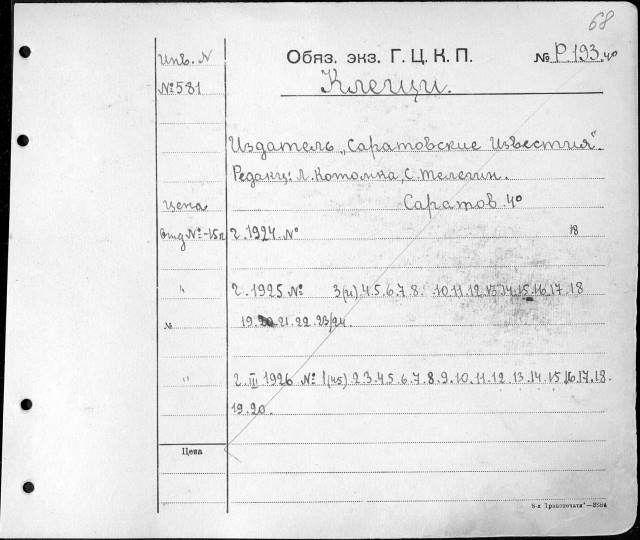 68
Инв. N Обяз. экз. Г. Ц. К. П. № Р.193.4°
№ 581 Клещи.
Издатель „Саратовские Известия".
Редакц: Л. Котомка, С. Телегин.
Цена Саратов 4°
Отд №-15к г. 1924 № 18
" г. 1925 № 3(21) 4.5.6.7.8. 10.11.12.13.14.15.16.17.18
№ 19.20.21.22.23/24.
" г. III 1926 № 1(45) 2.3.4.5.6.7.8.9.10.11.12.13.14.15.16.17.18.
19.20.
Цена